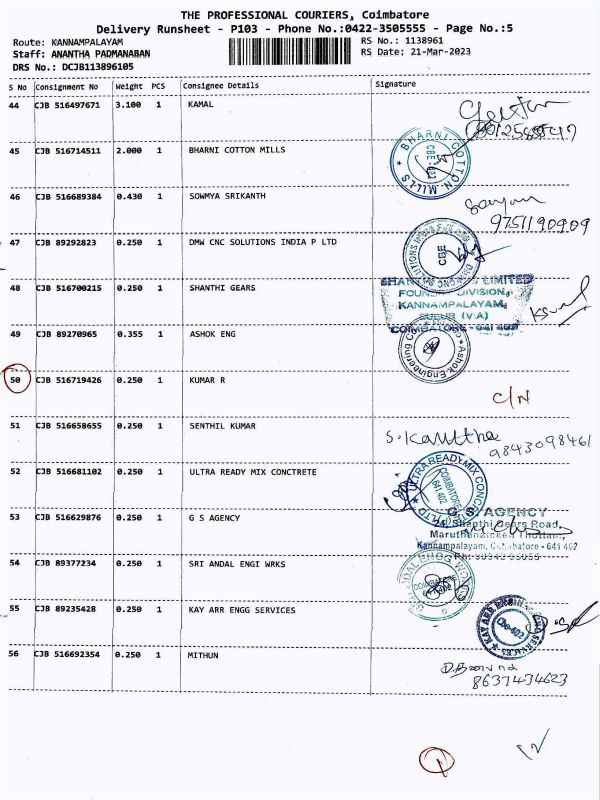 THE PROFESSIONAL COURIERS, Coimbatore
Delivery Runsheet - P103 - Phone No.:0422-3505555 - Page No.:5
Route: KANNAMPALAYAM
RS No.: 1138961
Staff: ANANTHA PADMANABAN
RS Date: 21-Mar-2023
DRS No.: DCJB113896105
S No Consignment No Weight PCS Consignee Details Signature
44 CJB 516497671 3.100 1 KAMAL
45 CJB 516714511 2.000 1 BHARNI COTTON MILLS
BHARNI COTTON MILLS
46 CJB 516689384 0.430 1 SOWMYA SRIKANTH
9751190909
47 CJB 89292823 0.250 1 DMW CNC SOLUTIONS INDIA P LTD
CBE
48 CJB 516700215 0.250 1 SHANTHI GEARS
LIMITED
DIVISION,
KANNAMPALAYAM,
SULUR (VIA)
COIMBATORE - 641 402
49 CJB 89270965 0.355 1 ASHOK ENG
Ashok Engineering
50 CJB 516719426 0.250 1 KUMAR R
C/N
51 CJB 516658655 0.250 1 SENTHIL KUMAR
S. Kavitha
9843098461
52 CJB 516681102 0.250 1 ULTRA READY MIX CONCTRETE
ULTRA READY MIX
COIMBATORE
641 402
53 CJB 516629876 0.250 1 G S AGENCY
G. S. AGENCY
Shanthi Gears Road,
Maruthanaicked Thottam,
Kannampalayam, Coimbatore - 641 402
54 CJB 89377234 0.250 1 SRI ANDAL ENGI WRKS
55 CJB 89235428 0.250 1 KAY ARR ENGG SERVICES
KAY ARR
56 CJB 516692354 0.250 1 MITHUN
8637434623